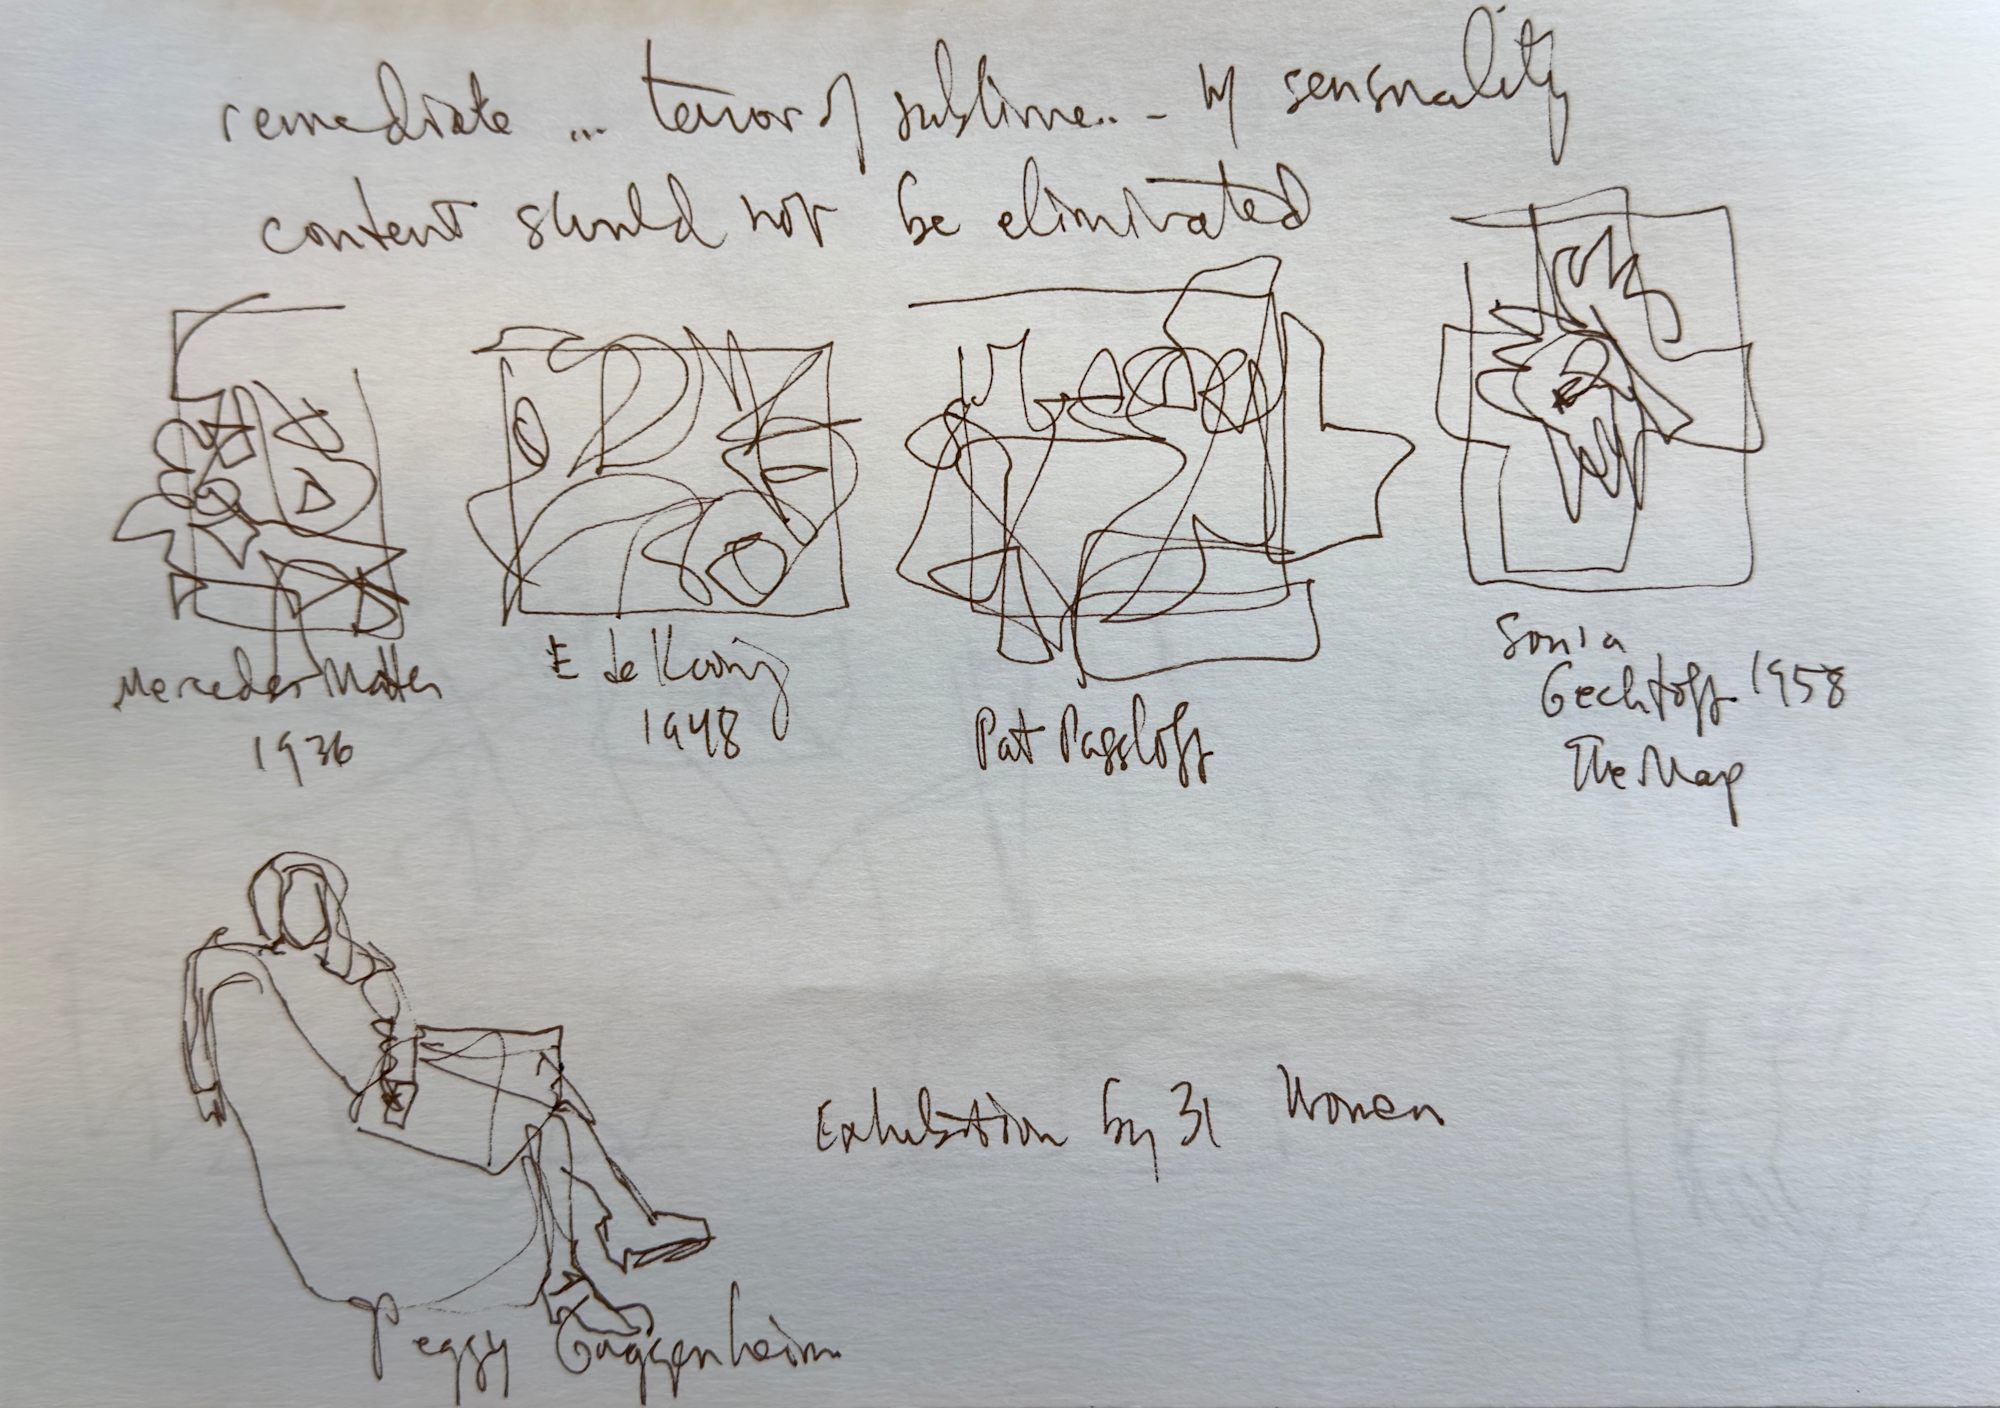 remediate ... terror of sublime.. - w/ sensuality
content should not be eliminated
Mercedes Matter
1936
E de Kooning
1948
Pat Passloff
Sonia
Gechtoff 1958
The Map
Exhibition by 31 Women
Peggy Guggenheim